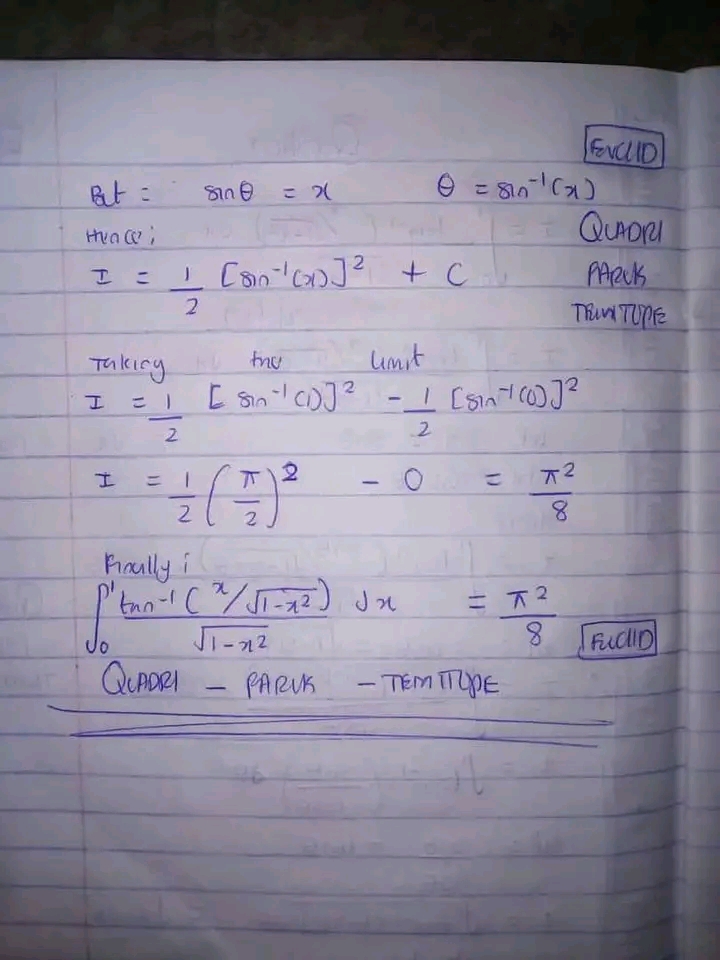 EUCLID
But : sinθ = x θ = sin⁻¹(x)
Hence; QUADRI
I = 1/2 [sin⁻¹(x)]² + C PARUK
TEMITOPE
Taking the limit
I = 1/2 [sin⁻¹(1)]² - 1/2 [sin⁻¹(0)]²
I = 1/2 (π/2)² - 0 = π²/8
Finally;
∫₀¹ tan⁻¹(x/√1-x²)/√1-x² dx = π²/8 EUCLID
QUADRI - PARUK - TEMITOPE